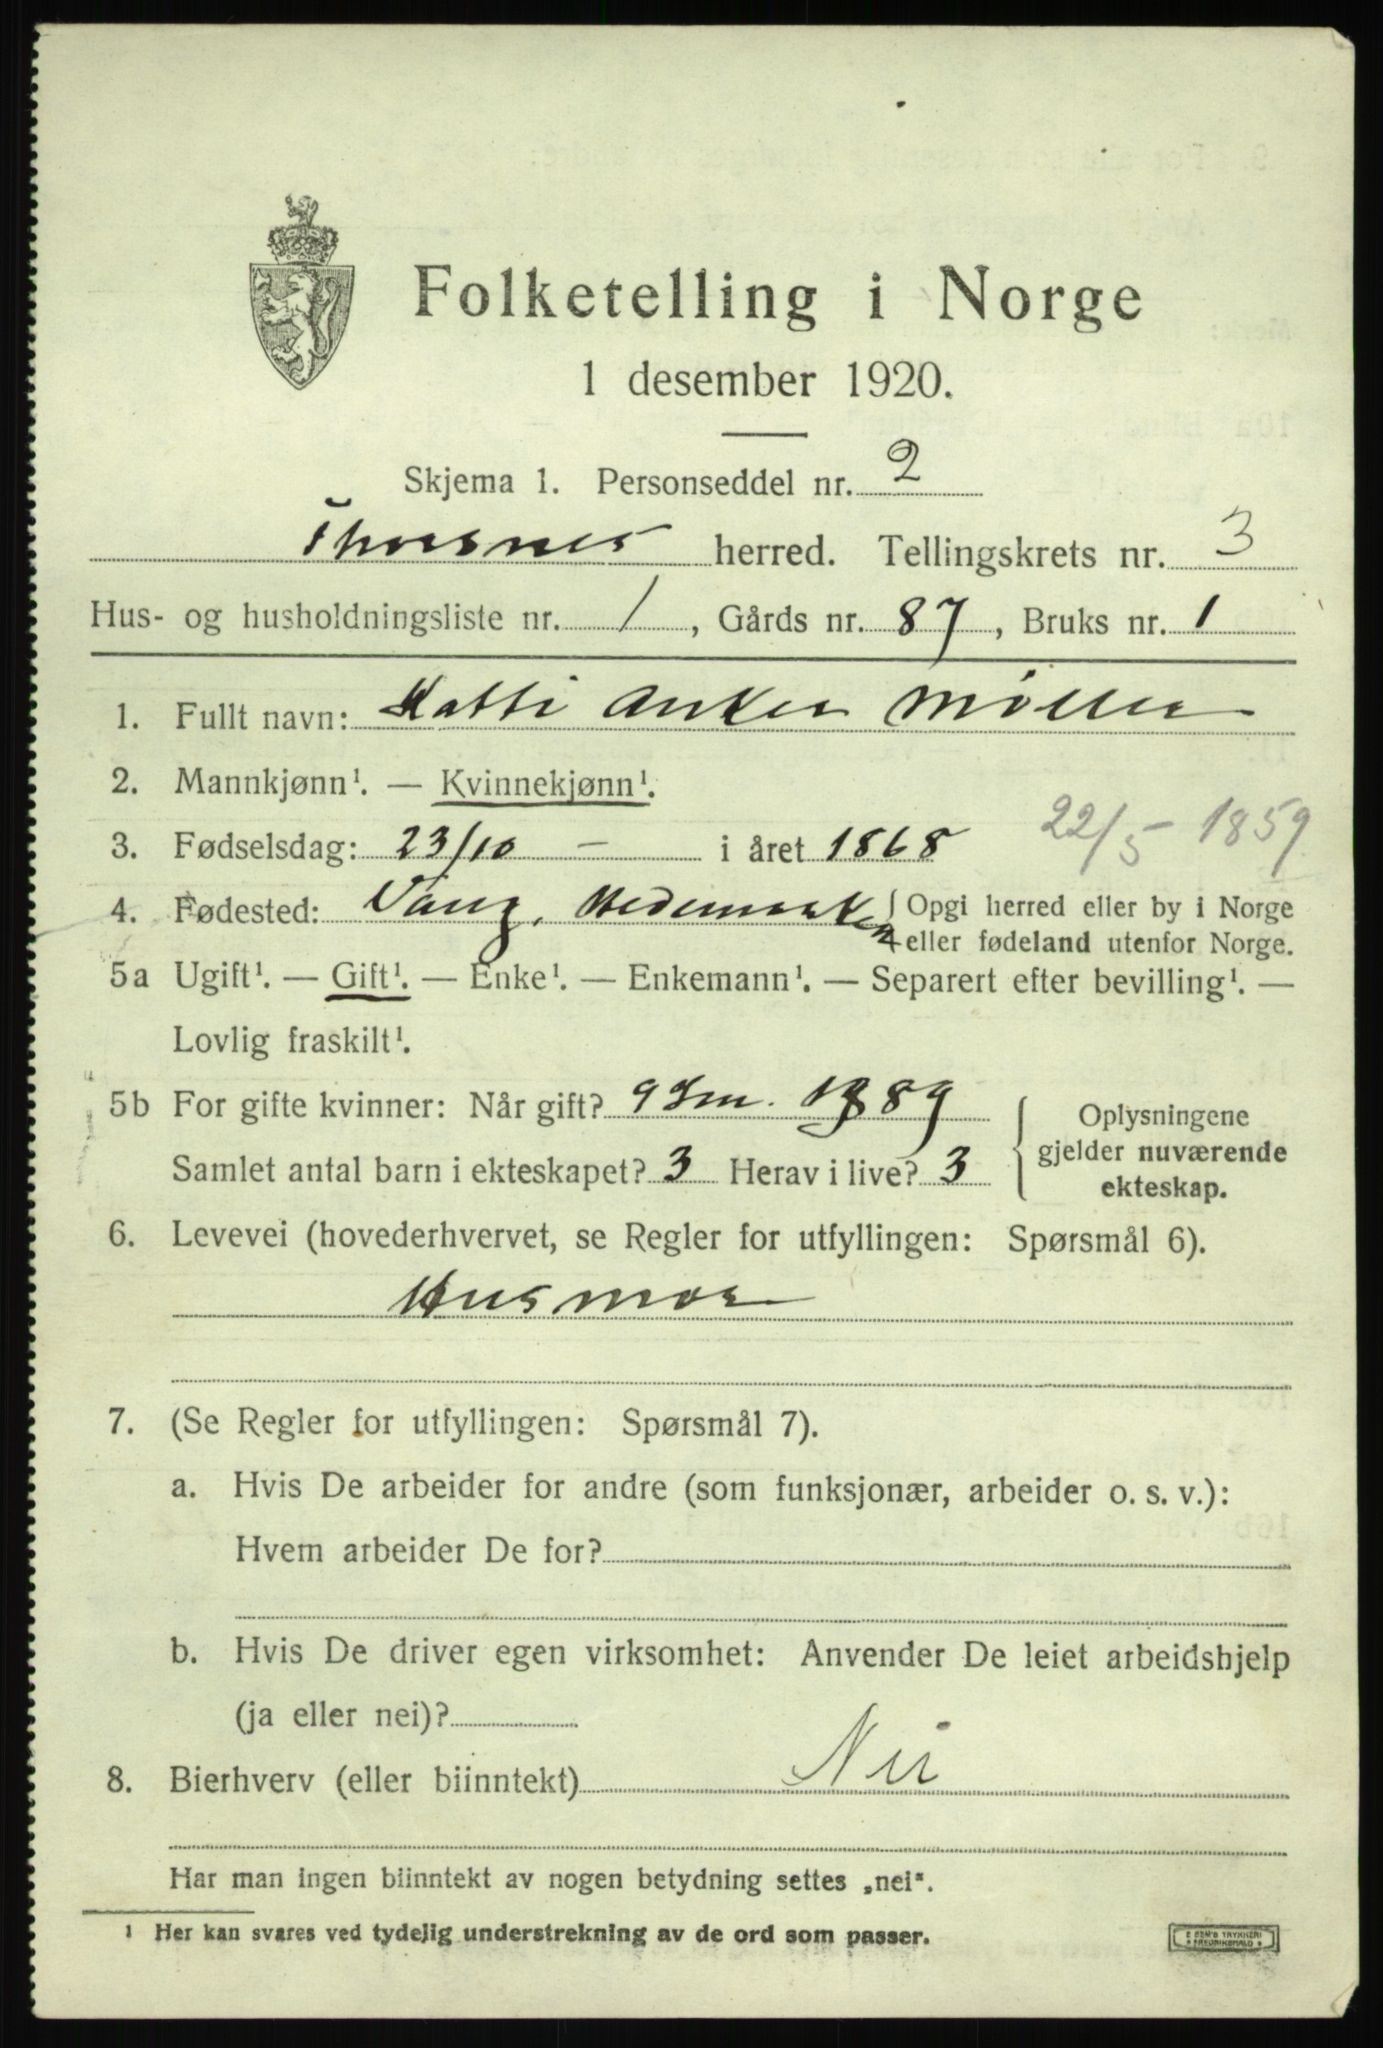 Folketelling i Norge
1 desember 1920.
Skjema 1. Personseddel nr. 2
Thorsnes herred. Tellingskrets nr. 3
Hus- og husholdningsliste nr. 1, Gårds nr. 87, Bruks nr. 1
1. Fullt navn: Katti Anker Møller
2. Mannkjønn¹. — Kvinnekjønn¹.
3. Fødselsdag: 23/10 — i året 1868 22/5 - 1859
4. Fødested: Vang, Hedemarken { Opgi herred eller by i Norge
eller fødeland utenfor Norge.
5a Ugift¹. — Gift¹. — Enke¹. — Enkemann¹. — Separert efter bevilling¹. —
Lovlig fraskilt¹.
5b For gifte kvinner: Når gift? 9 Jan. 1889
Samlet antal barn i ekteskapet? 3 Herav i live? 3
{ Oplysningene
gjelder nuværende
ekteskap.
6. Levevei (hovederhvervet, se Regler for utfyllingen: Spørsmål 6).
Husmor
7. (Se Regler for utfyllingen: Spørsmål 7).
a. Hvis De arbeider for andre (som funksjonær, arbeider o. s. v.):
Hvem arbeider De for?
b. Hvis De driver egen virksomhet: Anvender De leiet arbeidshjelp
(ja eller nei)?
8. Bierhverv (eller biinntekt) Nei
Har man ingen biinntekt av nogen betydning settes „nei“.
¹ Her kan svares ved tydelig understrekning av de ord som passer.